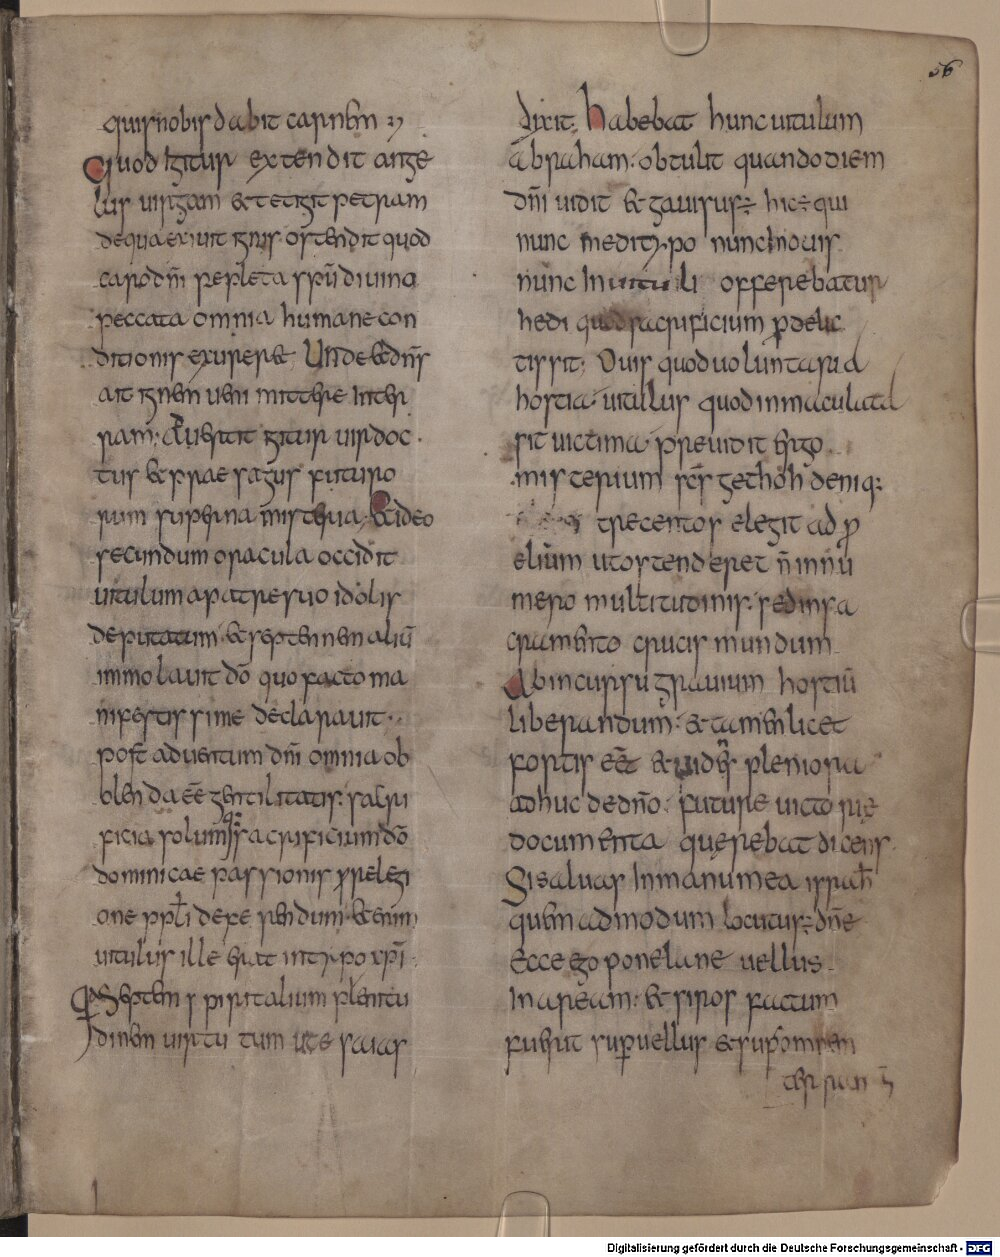 56
quis nobis dabit carnem
Quod igitur extendit ange
lus virgam & tetigit petram
de qua exivit ignis ostendit quod
caro dn̄i repleta spū divino
peccata omnia humane con
ditionis exurere& Unde & dn̄s
ait ignem veni mittere in ter
ram; Advertit igitur vir doc
tus & praesagus futuro
rum superna misteria; & ideo
secundum oracula occidit
vitulum a patre suo idolis
deputatum & septennem aliū
immolavit dō quo facto ma
nifestissime declaravit
post adventum dn̄i omnia ob
blenda eē gentilitatis sacri
ficia solumq; sacrificium dō
dominicae passionis pro relegi
one ppl̄i deferendum & enim
vitulus ille erat in typo xp̄i
quo septem spiritalium plenitu
dinem virtutum ut esaias
dixit; habebat hunc vitulum
abraham obtulit quando diem
dn̄i vidit & gavisus ÷ hic ÷ qui
nunc inovis
nunc in vituli offerebatur
hedi quod sacrificium ꝓ delic
tis sit; Ovis quod voluntaria
hostia vitulus quod inmaculata
sit victima previdit ergo
misterium sc̄s gethoh deniq;
trecentos elegit ad ꝓ
eliūm ut ostenderet n̄ in nū
mero multitudinis sed in sa
cramento crucis mundum
Ab incursu gravium hostiū
liberandum & tamen licet
fortis eēt & fidens pleniora
adhuc de dn̄o future victorię
documenta querebat dicens
Si salvas in manu mea israh̄l
quemadmodum locutus ÷ dn̄e
Ecce ego pone lane vellus
In aream & si ros factum
fuerit sup̄ vellus & sup̄ omnem
terram
Digitalisierung gefördert durch die Deutsche Forschungsgemeinschaft - DFG